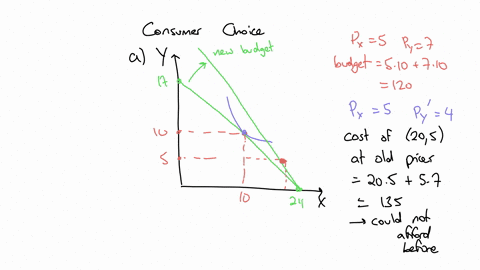 Consumer Choice
a) Y
new budget
17
10
5
10
24
X
Px = 5 Py = 7
budget = 5.10 + 7.10
= 120
Px = 5 Py' = 4
cost of (20,5)
at old prices
= 20.5 + 5.7
= 135
→ could not
afford
before